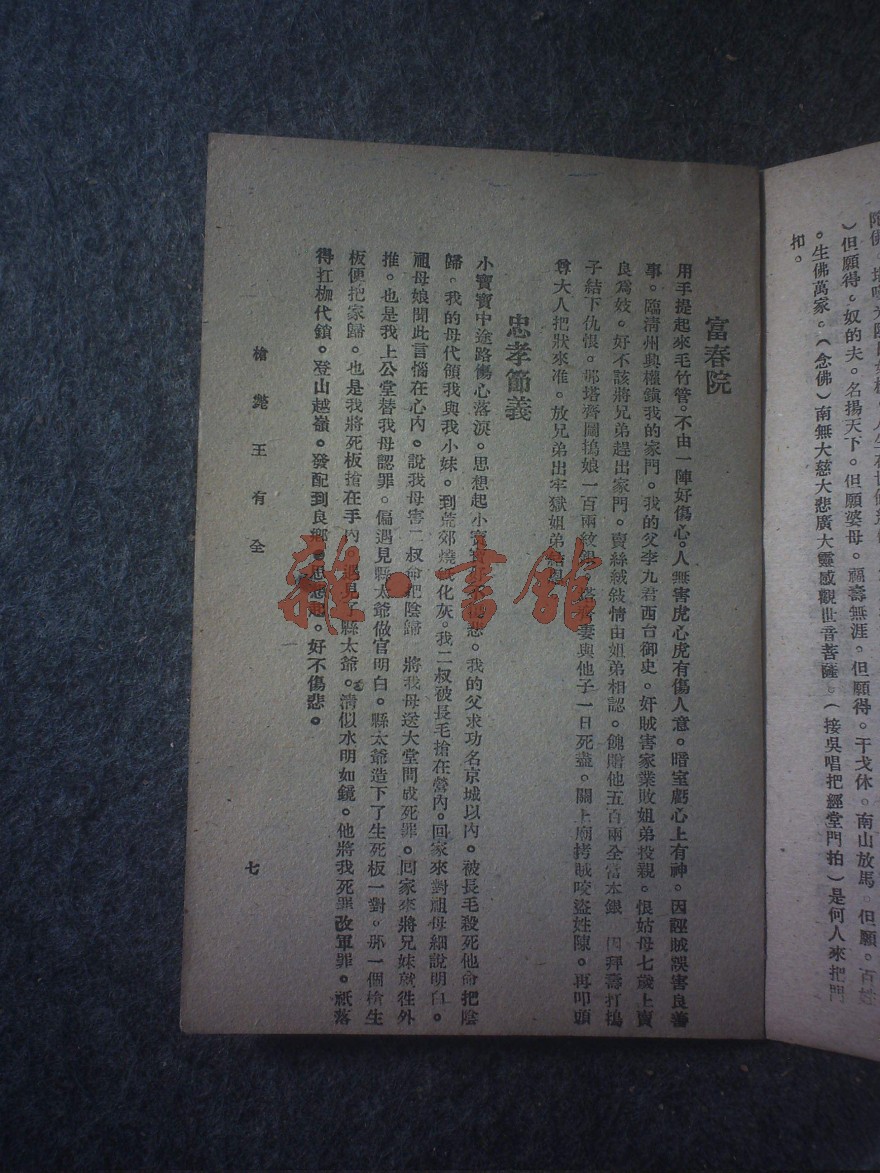 生佛萬家。（念佛）南無大慈大悲廣大靈感觀世音菩薩。（接吳唱把經堂門拍）是何人來把門
扣。
富春院
用手提起來毛竹管。不由一陣好傷心。人無害虎心虎有傷人意。暗室虧心上有神。因誣賊誤害良善
事。臨清州與權鎮我的家門。我的父李九君西台御史。奸賊害家業敗姐弟投親。恨姑母七歲上賣
良為妓。好不該將兄弟趕出家門。賣絲絨敍情由姐弟相認。餽贈他五百兩全當本銀 因拜壽打搗
子結下仇恨。那塔齊圖搗娘一百兩紋銀 妻與他子一日死盡。關上廟拷賊咬盜姓陳。再叩頭
尊大人把狀來准。放兄弟出牢獄姐弟
忠孝節義
小寶寶中途路傷心落淚。思想起小寶寶好不傷悲。我的父求功名京城以內。被長毛殺死他命把陰
歸。我的母代領我與我小妹。到荒郊燒 化灰。我二叔被長毛搶在營內。回家來對祖母細說明白。
祖母娘聞此言惱在心內。說我母害二叔命把陰歸 將我母送大堂問成死罪。回家來將兄妹就往外
推。也是我上公堂替我母認罪。偏遇見縣太爺做官明白。縣太爺造下了生死板一對。那一個搶生
板便把家歸。也是我將死板搶在手內 遇見了縣太爺。清似水明如鏡。他將我死罪改軍罪。祇落
得扛枷代鎖。登山越嶺。發配到良鄉。思想起。好不傷悲。
王有全
一
七
雜·書館